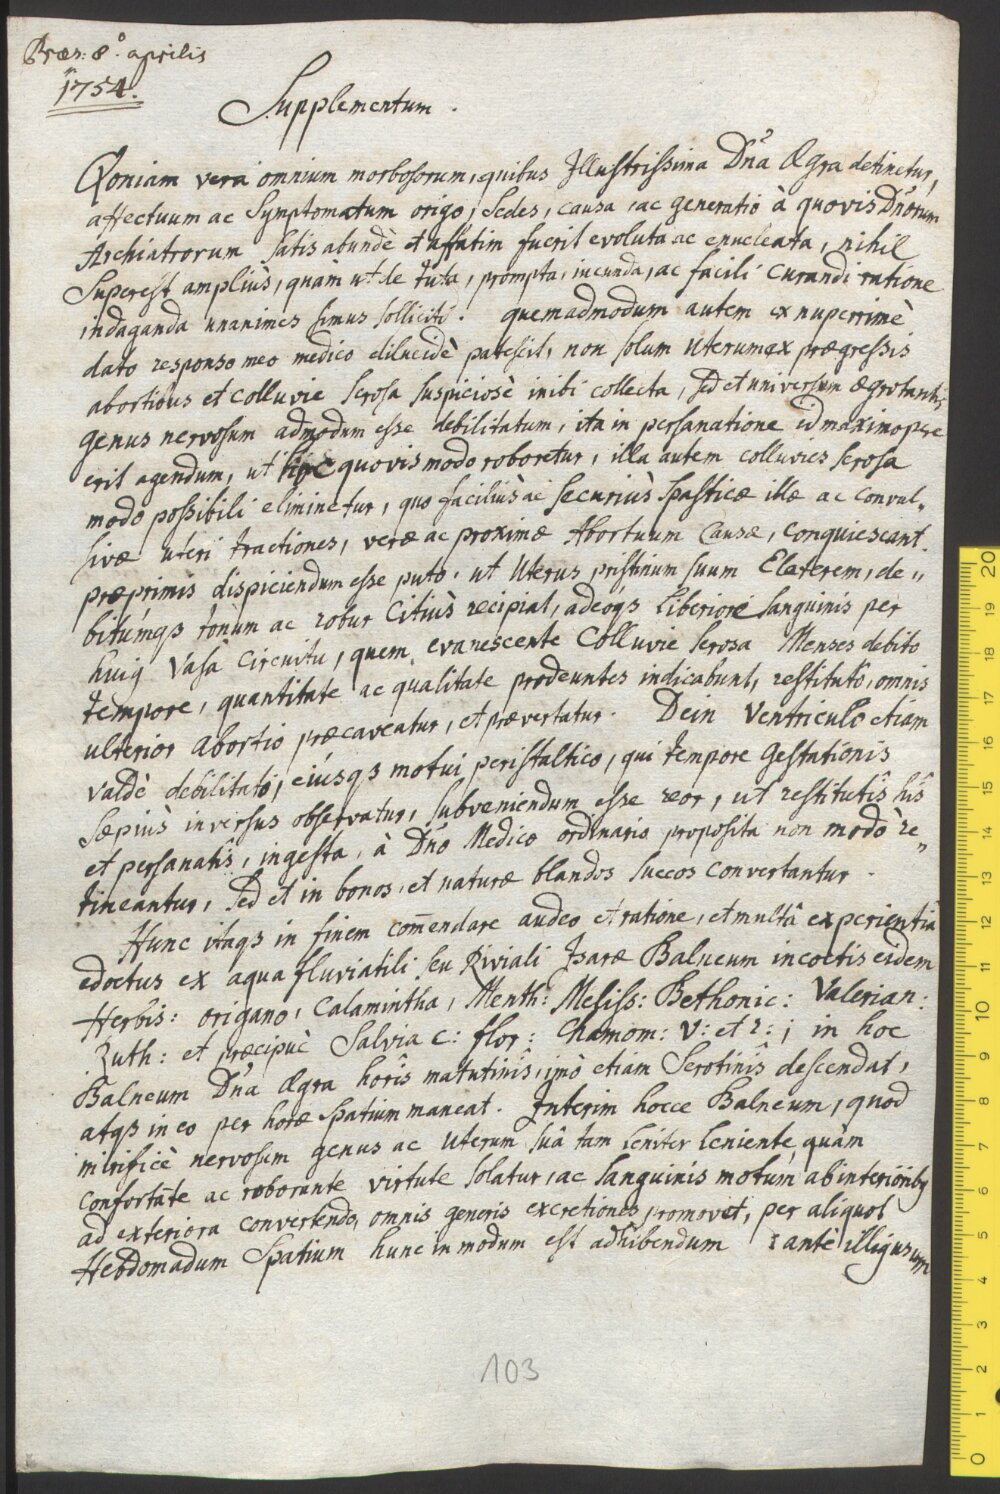 Præs: 8.º aprilis
1754.
Supplementum.
Qoniam vera omnium morbosorum, quibus Illustrissima Dña Ægra detinetur,
affectuum ac Symptomatum origo, Sedes, causa, ac generatio à quovis Dñorum
Archiatrorum satis abundè et affatim fuerit evoluta ac enucleata, nihil
Superest ampliùs, quàm ut de tuta, prompta, iucunda, ac facili curandi ratione
indaganda unanimes simus solliciti. quemadmodum autem ex nuperrimè
dato responso meo medico dilucidè patescit, non solum Uterum ex prægressis
abortibus et colluvie serosa suspiciosè inibi collecta, sed et universum ægrotantis
genus nervosum admodum esse debilitatum, ita in persanatione id maximopere
erit agendum, ut hoc quovis modo roboretur, illa autem colluvies serosa
modo possibili eliminetur, quo faciliùs ac securiùs spasticæ illæ ac convul„
sivæ uteri tractiones, veræ ac proximæ Abortuum Causæ, conquiescant.
præprimis dispiciendum esse puto, ut Uterus pristinum suum Elaterem, de„
bitúmqs tonum ac robur citiùs recipiat, adeóqs liberiore sanguinis per
huig vasa circuitu, quem, evanescente Colluvie serosa Menses debito
tempore, quantitate ac qualitate prodeuntes indicabunt, restituto, omnis
ulterior abortio præcaveatur, et prævertatur. Dein Ventriculo etiam
valdè debilitato, eiúsqs motui peristaltico, qui tempore gestationis
sæpiùs inversus observatur, subveniendum esse reor, ut restitutîs hîs
et persanatîs, ingesta, à Dño Medico ordinario proposita non modò re„
tineantur, sed et in bonos, et naturæ blandos succos convertantur.
Hunc itaqs in finem com̄endare audeo et ratione, et multâ experientiâ
edoctus ex aqua fluviatili seu Riviali Isaræ Balneum incoctis eidem
Herbis: origano, Calamintha, Menth: Meliss: Bethonic: Valerian:
Ruth: et præcipuè Salvia c: flor: Chamom: V: et r: ; in hoc
Balneum Dña Ægra horîs matutinîs, imò etiam Serotinîs descendat,
atqs in eo per horæ spatium maneat. Interim hocce Balneum, quod
mirificè nervosum genus ac Uterum suâ tam leniter leniente, quàm
confortāte ac roborante virtute solatur, ac sanguinis motum ab interiorib9
ad exteriora convertendo, omnis generis excretiones promovet, per aliquot
Hebdomadum Spatium hunc in modum est adhibendum antè illig usum
103